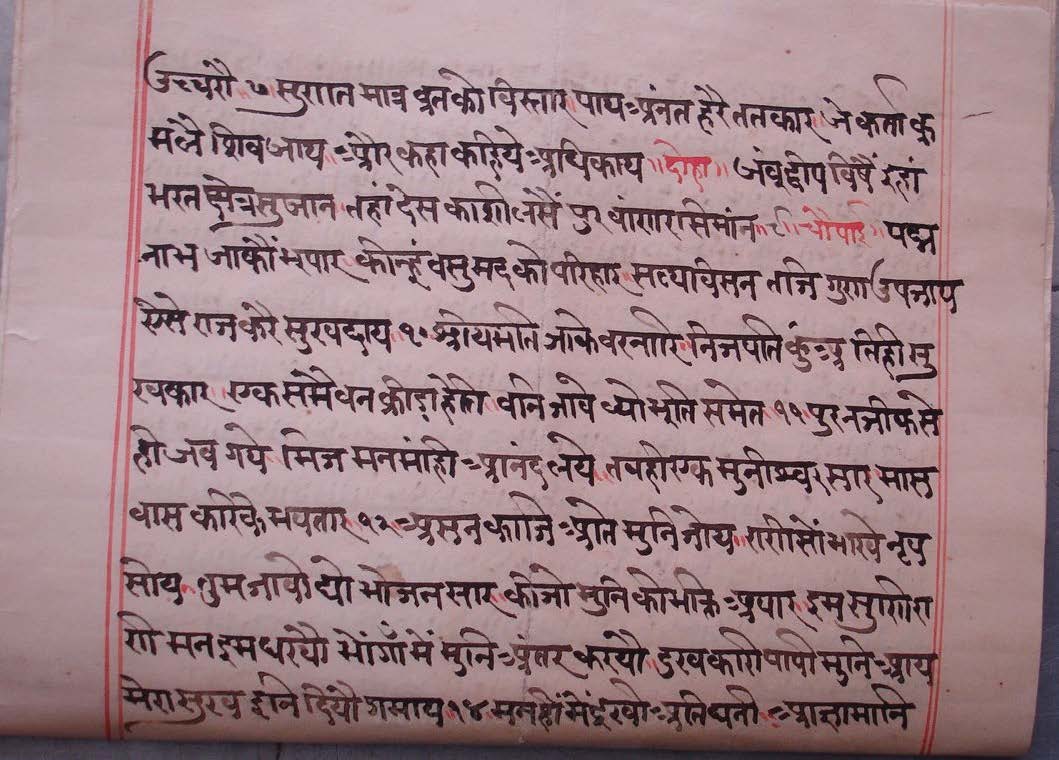 उच्चरौ ७ सुगात मात्र व्रतको विस्तार पाय अनंत हरै ततकार जे कर्ता क्र
मलै शिव जाय और कहा कहिये अधिकाय ॥दोहा॥ जंबूद्वीप विषैं इहां
भरत क्षेत्र सुजान तहां देस काशी लसैं पुर वांणारसि मांन ॥ ॥चौपाई॥ पद्म
नाभ जाकौ भूपार कीन्हूं वसु मदको परिहार सप्त विसन तजि गुण उपजाय
ऐसे राज करै सुखदाय १० श्रीयमति जाके वरनारि निज पति कुं अतिही सु
खकार एक समै वन क्रीड़ा हेति वनि जावे थो भूति समेत ११ पुर नजीकसे
ही जव गये निज मनमांही आनंद लये तवही एक मुनीश्वर सार मास
वास करिके भवतार १२ असन काजि आते मुनि जोय राणीसों भाखे नृप
सोय तुम जावो द्यो भोजन सार कीजो मुनिकी भक्ति अपार इम सुणि रा
णी मन इम धरयौ भोंगोंमें मुनि अंतर करयौ दुखकारी पापी मुनि आय
मेरा सुख इनि दियौ गमाय १४ मनहीमें दुखी अति घती आज्ञा मानि